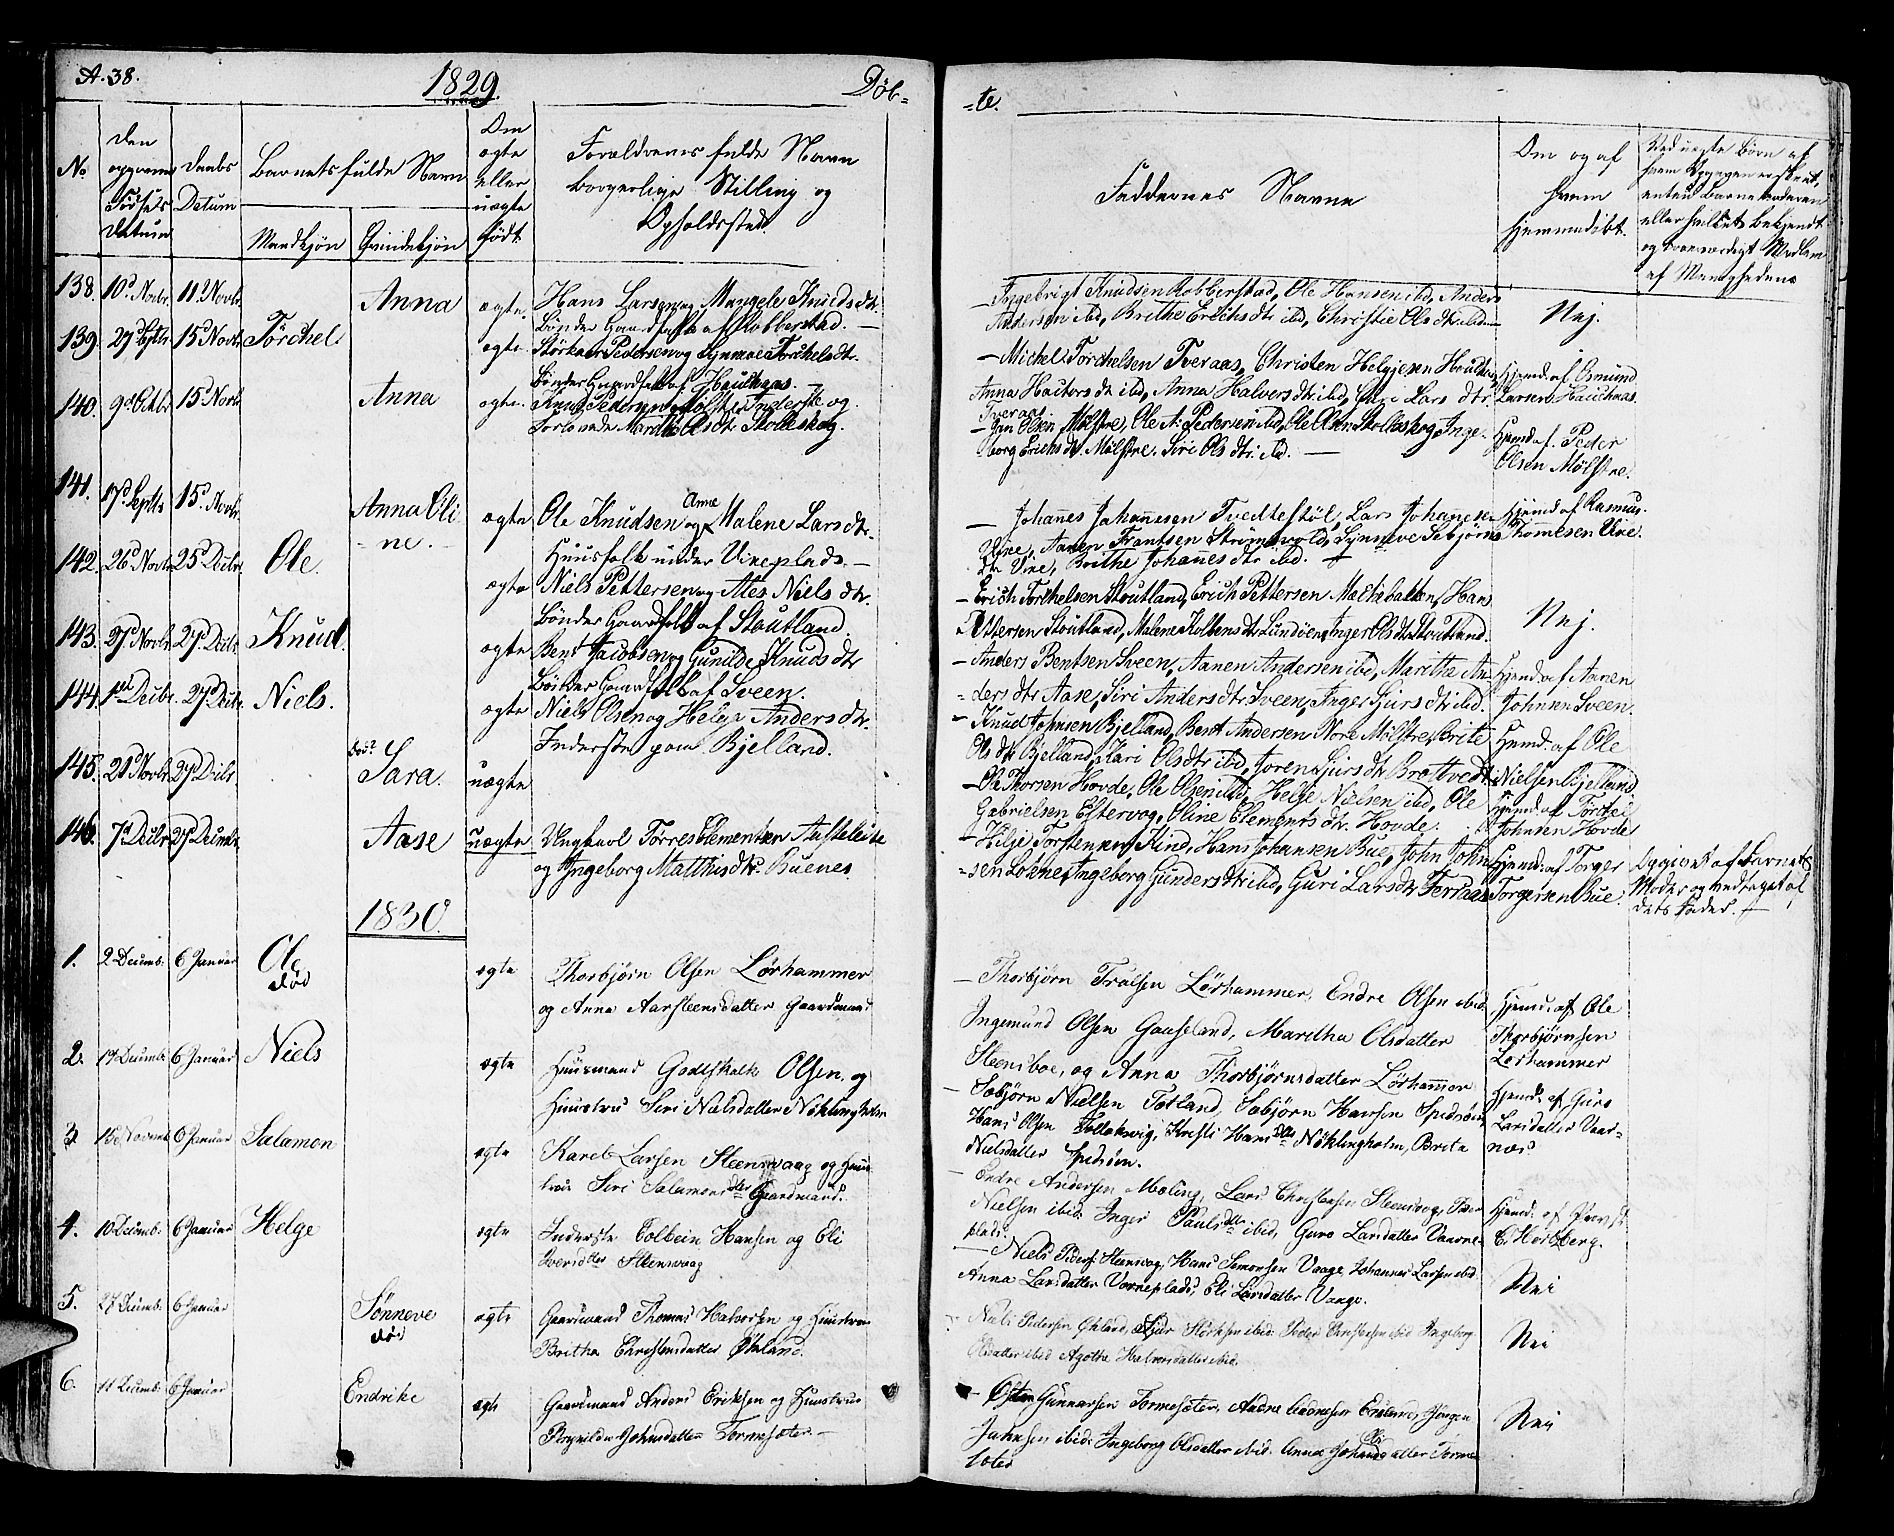 A. 38.
1829.
Döb-
-te.
No
Den opgivne Födsels Datum
Daabs Datum
Barnets fulde Navn
Mandkjön
Qvindekjön
Om ægte eller uægte födt.
Forældrenes fulde Navn
borgerlige Stilling og
Opholdssted.
Faddernes Navne
Om og af
hvem
hjemmedöbt.
Ved uægte Börn af
eller hvilkets bekjendt
og troeværdigt Medlem
af Menigheden
138. 10d Novbr. 11d Novbr. Anna ægte. Hans Larsen og Mangele Knudsdtr.
Bönder Gaardfolk af Robberstad. —
— Ingebrigt Knudsen Robberstad, Ole Hansen ibd, Anders
Andersen ibd, Brithe Erichsdtr ibd, Christie Olsdtr ibd — Nej.
139. 15d Novbr Törchel ægte Störkaar Pedersen og Synnove Torchelsdtr.
Bönder Gaardfolk af Hauchaas. —
— Michel Torchelsen Tveraas, Christen Helgjesen
Anna ibd, Anna Halvorsdtr ibd, Lars dtr.
Tveraas
Hjemd. af Osmund
Larsen Hauchaas
140. 9d Octbr. 15d Novbr Anna ægte. Knud Pedersen Mölstre Inderste og
forlovede Marthe Olsdtr Skolleskog.
— Olsen Mölstre, Ole A. Pedersen ibd, Ole Olsen Skolleskog, Inge-
borg Erichsdtr. Mölstre. Siri Olsdtr. ibd. —
Hjemd. af Peder
Olsen Mölstre.
141. 17d Septbr 15d Novbr. Anna Oli
-ne. ægte Ole Knudsen og Anne Malene Larsdtr.
Huusfolk under Vinepladz. —
— Johannes Johannesen Tvedtestöl, Lars Johanesen
Vine, Aanen Frantsen Strömsvold, Synneve Sebjörns
dtr Vine, Brithe Johannesdtr ibd.
Hjemd af Rasmus
Thommesen Vine.
142. 26d Novbr 25d Decbr. Ole. ægte Niels Pettersen og Ales Nielsdtr.
Bönder Gaardfolk af Stoutland.
— Erich Torchelsen Stoutland, Erich Pettersen Hans
Pettersen Stoutland, Malene Kolbensdtr Lundöen, Inger Olsdtr Stoutland.
Nej.
143. 27d Novbr 27d Decbr. Knud. ægte Bent Jacobsen og Gunilde Knudsdtr
Bönder Gaardfolk af Sveen.
— Anders Bentsen Sveen, Aanen Andersen ibd, Marithe An-
-dersdtr Aase, Siri Andersdtr Sveen, Inger Gjursdtr ibd.
Hjemd. af Aanen
Johnsen Sveen.
144. 1ste Decbr. 27d Decbr. Niels. ægte Niels Olsen og Helge Andersdtr.
Inderste paa Bjelland.
— Knud Johnsen Bjelland, Bent Andersen Nore Mölstre, Brite
Olsdtr Bjelland, Kari Olsdtr ibd, Joren Gjursdtr Brattvedt.
Hjemd. af Ole
Nielsen Bjelland.
145. 21d Novbr 27d Decbr. död. Sara. uægte
— Ole Thorsen Hovde, Ole Olsen ibd, Helge Nielsen ibd, Ole
Gabrielsen Eltervog, Oline Elementsdtr. Hovde.
Hjemd. af Törchel
Johnsen Hovde
146. 7d Decbr 27d Decembr. Aase uægte Ungkarl Törres Clementsen
og Ingeborg Matthisdtr. Buenes
— Helje Torstensen Kind, Hans Johansen Bue, John John-
-sen Lokne, Ingeborg Gundersdtr ibd, Guri Larsdtr Terraas
Hjemd. af Torger
Torgersen Bue.
Opgivet af Barnets
Moder og vedtaget af
dets Fader. —
1830.
1. 2 Decemb. 6 Januar Ole
död ægte Thorbjörn Olsen Lörhammer
og Anna Aarsteensdatter Gaardmand
— Thorbjörn Trulsen Lörhammer, Endre Olsen ibid
Ingemund Olsen Gauseland, Maritha Olsdatter
Steensboe, og Anna Thorbjörnsdatter Lörhammer
Hjemd. af Ole
Thorbjörnsen
Lörhammer
2. 17 Decemb. 6 Januar Niels ægte Huusmand Godtskalk Olsen og
Huustru Siri Nielsdatter Nöklingholm
— Sebjörn Nielsen Totland, Sebjörn Hansen Spidsöen
Hans Olsen Folleksvig, Kirsti Hansdtr Nöklingholm, Brita
Nielsdatter Spidsöen.
Hjemd. af Guro
Larsdatter Vaar-
næs
3 15 Novemb 6 Januar Salamon ægte Karel Larsen Steensvaag og Huus-
true Siri Salamonsdtr Gaardmand.
— Endre Andersen Mæling, Lars Christensen Steensvog, Peder
Nielsen ibid. Inger Paulsdtr ibid, Guro Larsdatter Vaarne-
plads.
Hjemd. af Provst
C. Hertzberg.
4. 10 Decemb. 6 Januar Helge ægte Inderste Colbein Hansen og Eli
Iversdtter Steensvaag
— Niels Peders. Steensvog, Hans Simonsen Vaage, Johannes Larsen ibid
Anna Larsdatter Vorneplads, Eli Larsdatter Vaage.
Nei
5. 27 Decemb. 6 Januar Sönneve
död ægte Gaardmand Thomas Halvorsen og Huustru
Britha Christensdatter Ökland.
Niels Pedersen Ökland, Gjur Störksen ibid. Peder Christensen ibid Ingeborg
Olsdatter ibid Agathe Halvorsdatter ibid.
Nei
6. 11 Decemb. 6 Januar Endrike ægte Gaardmand Anders Eriksen og Huustrue
Ragnilda Johnsdatter Tormesæter. —
— Östen Gunnarsen Tormesæter,
Johnsen ibid. Ingeborg Olsdatter ibid. Anna datter Torme-
sæter
Nei